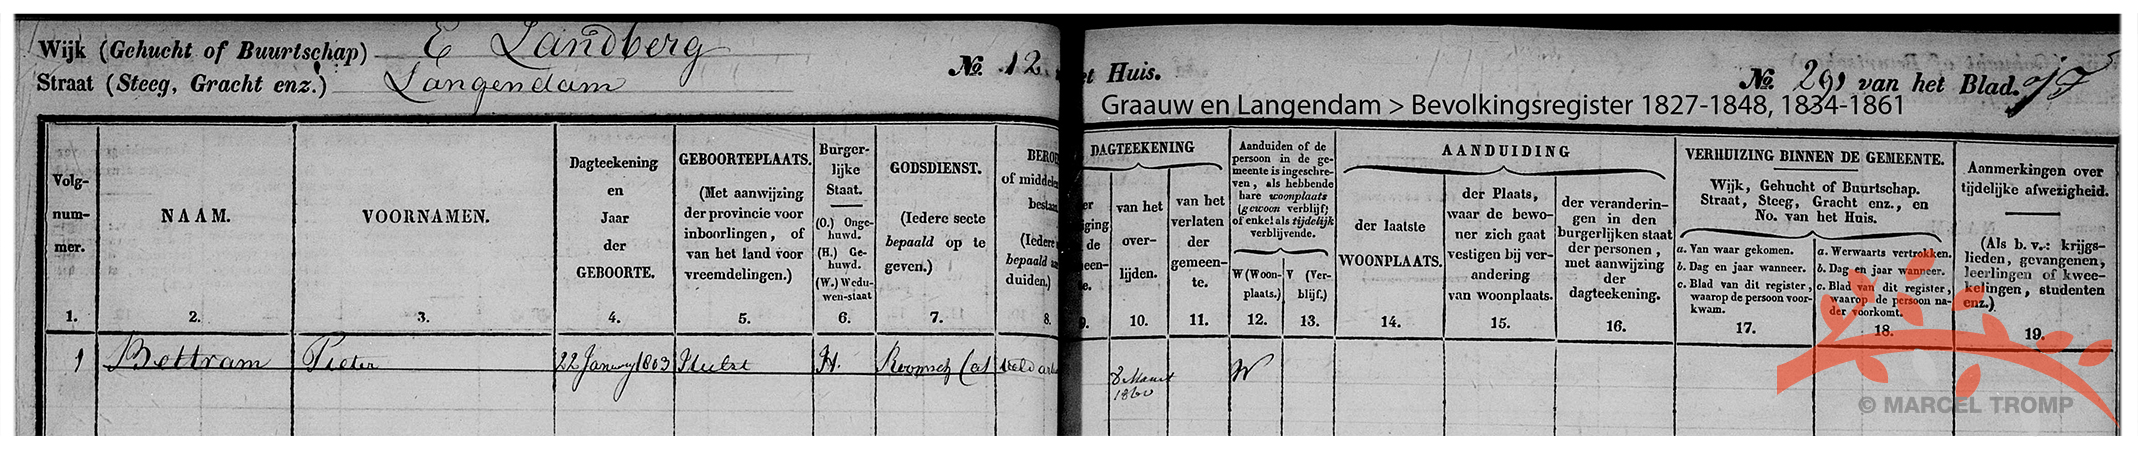 Wijk (Gehucht of Buurtschap) E Landberg
Straat (Steeg, Gracht enz.) Langendam
No. 12
et Huis.
No. 291 van het Blad.
Graauw en Langendam > Bevolkingsregister 1827-1848, 1834-1861
Volg-
num-
mer.
1.
NAAM.
2.
VOORNAMEN.
3.
Dagteekening
en
Jaar
der
GEBOORTE.
4.
GEBOORTEPLAATS.
(Met aanwijzing
der provincie voor
inboorlingen, of
van het land voor
vreemdelingen.)
5.
Burger-
lijke
Staat.
(O.) Onge-
huwd.
(H.) Ge-
huwd.
(W.) Wedu-
wen-staat
6.
GODSDIENST.
(Iedere secte
bepaald op te
geven.)
7.
BEROE
of middele
bestaa
(Iedere
bepaald aa
duiden.)
8.
DAGTEEKENING
er
iging
de
een-
e.
9.
van het
over-
lijden.
10.
van het
verlaten
der
gemeen-
te.
11.
Aanduiden of de
persoon in de ge-
meente is ingeschre-
ven, als hebbende
hare woonplaats
(gewoon verblijf)
of enkel als tijdelijk
verblijvende.
W (Woon-
plaats.)
12.
V (Ver-
blijf.)
13.
AANDUIDING
der laatste
WOONPLAATS.
14.
der Plaats,
waar de bewo-
ner zich gaat
vestigen bij ver-
andering
van woonplaats.
15.
der veranderin-
gen in den
burgerlijken staat
der personen,
met aanwijzing
der
dagteekening.
16.
VERHUIZING BINNEN DE GEMEENTE.
Wijk, Gehucht of Buurtschap.
Straat, Steeg, Gracht enz., en
No. van het Huis.
a. Van waar gekomen.
b. Dag en jaar wanneer.
c. Blad van dit register,
waarop de persoon voor-
kwam.
17.
a. Werwaarts vertrokken.
b. Dag en jaar wanneer.
c. Blad van dit register,
waarop de persoon na-
der voorkomt.
18.
Aanmerkingen over
tijdelijke afwezigheid.
(Als b. v.: krijgs-
lieden, gevangenen,
leerlingen of kwee-
kelingen, studenten
enz.)
19.
1 Bettram Pieter 22 January 1803 Hulst H. Roomsch Cat veld arb
8 Maart
1860
W
© MARCEL TROMP